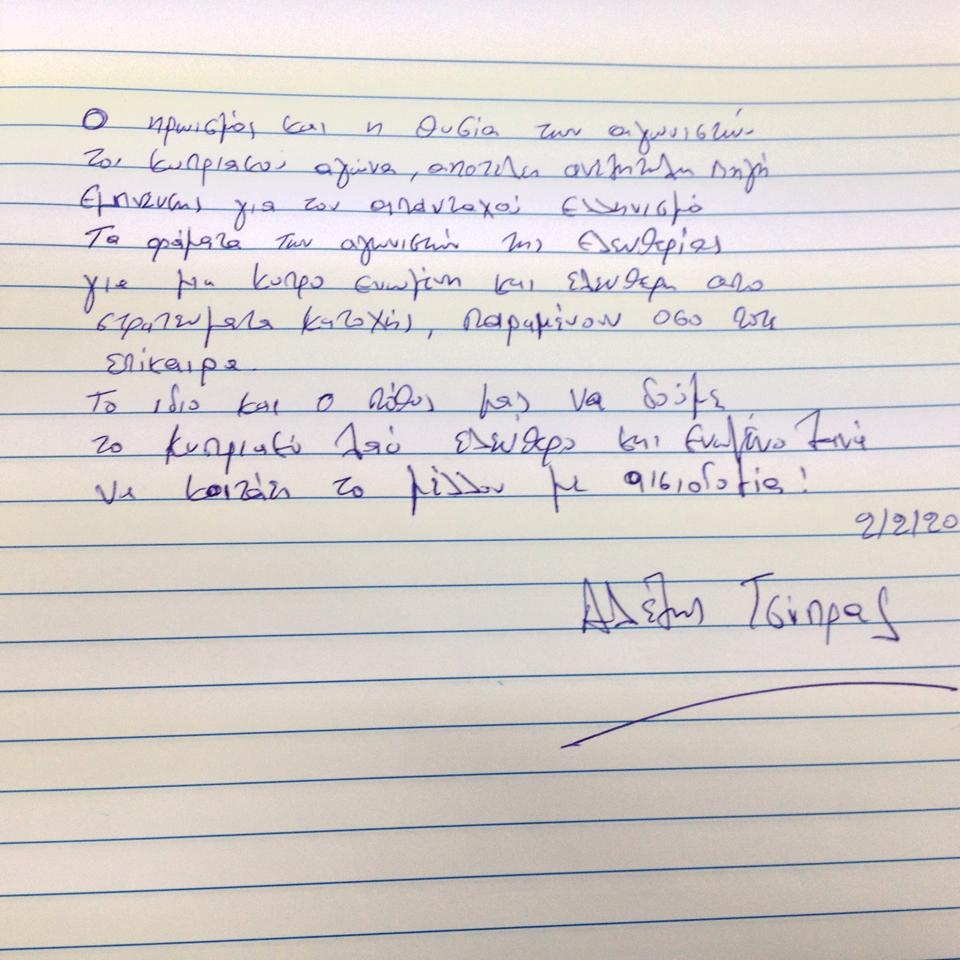 Ο ηρωισμός και η θυσία των αγωνιστών
του κυπριακού αγώνα, αποτελεί ανεξάντλητη πηγή
έμπνευσης για τον απανταχού Ελληνισμό
Τα οράματα των αγωνιστών της Ελευθερίας
για μια Κύπρο ενωμένη και ελεύθερη απο
στρατεύματα κατοχής, παραμένουν οσο ποτέ
επίκαιρα.
Το ιδιο και ο πόθος μας να δούμε
το κυπριακό λαό ελεύθερο και ενωμένο ξανά
να κοιτάει το μέλλον με αισιοδοξία!
2/2/20
Αλέξης Τσίπρας